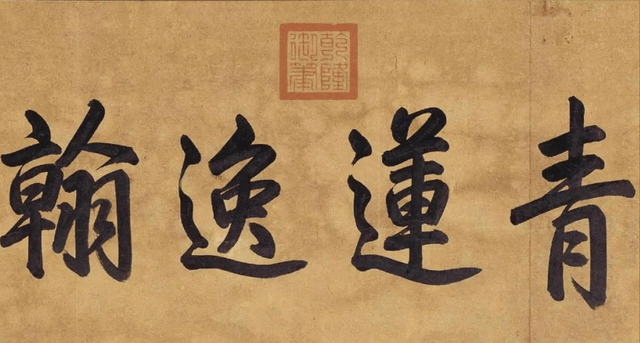 乾隆御筆
青蓮逸翰